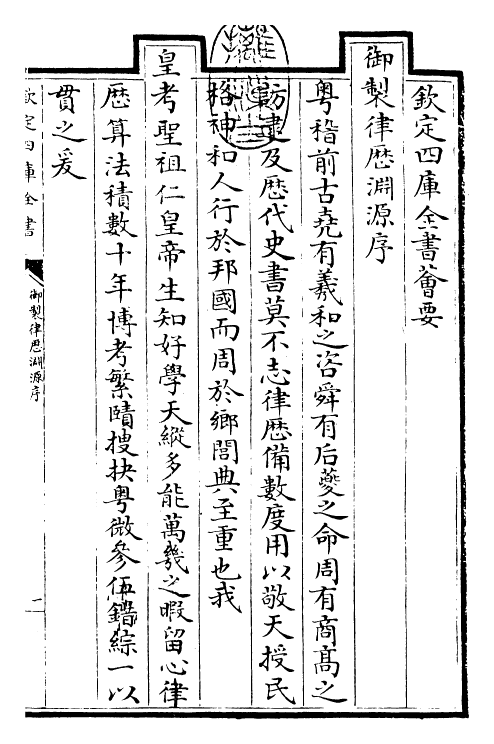 欽定四庫全書薈要
御製律歴淵源序
粤稽前古堯有羲和之咨舜有后夔之命周有商髙之
訪逮及歴代史書莫不志律歴備數度用以敬天授民
格神和人行於邦國而周於鄉閭典至重也我
皇考聖祖仁皇帝生知好學天縱多能萬幾之暇留心律
歴算法積數十年博考繁賾搜抉奥微參伍錯綜一以
貫之爰
欽定四庫全書
御製律歴淵源序
一